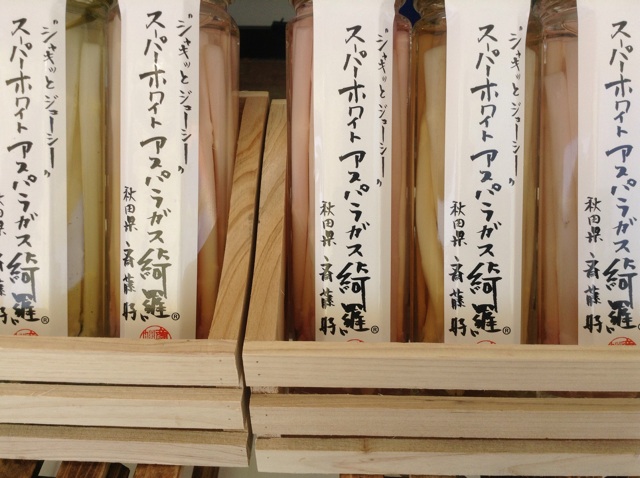 スーパーホワイト アスパラガス 綺羅®
秋田県 斎藤
"シャキッとジューシー"
スーパーホワイト アスパラガス 綺羅®
秋田県 斎藤
"シャキッとジューシー"
スーパーホワイト アスパラガス 綺羅®
秋田県 斎藤
"シャキッとジューシー"
スーパーホワイト アスパラガス 綺羅®
秋田県 斎藤
"シャキッとジューシー"
スーパーホワイト アスパラガス 綺羅®